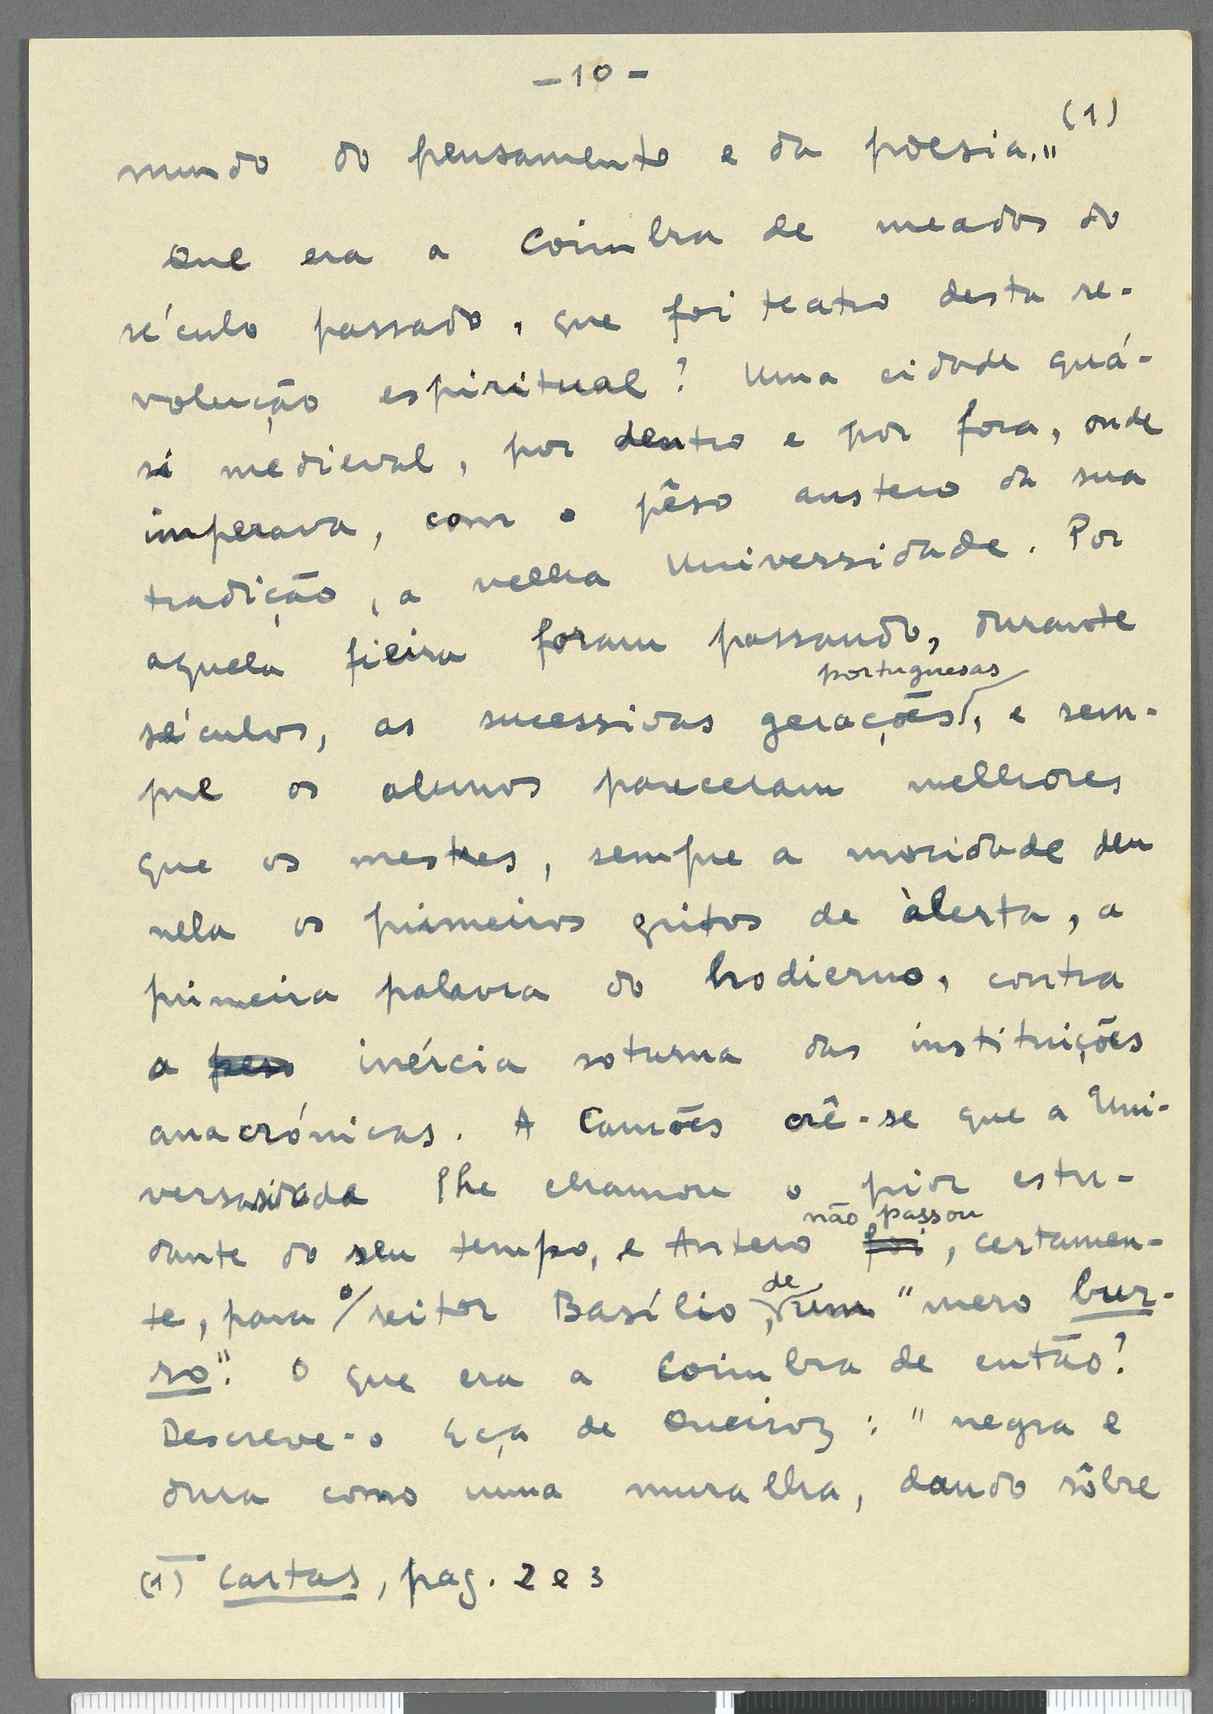 - 10 -
mundo do pensamento e da poesia." (1)
Que era a Coimbra de meados do
século passado, que foi teatro desta re-
volução espiritual? Uma cidade quá-
si medieval, por dentro e por fora, onde
imperava, com o pêso austero da sua
tradição, a velha Universidade. Por
aquela fieira foram passando, durante
séculos, as sucessivas gerações portuguesas, e sem-
pre os alunos pareceram melhores
que os mestres, sempre a mocidade deu
nela os primeiros gritos de àlerta, a
primeira palavra do hodierno, contra
a peso inércia soturna das instituições
anacrónicas. A Camões crê-se que a Uni-
versidade lhe chamou o pior estu-
dante do seu tempo, e Antero foi não passou, certamen-
te, para o reitor Basílio, de um "mero bur-
ro". O que era a Coimbra de então?
Descreve-o Eça de Queiroz: "negra e
dura como uma muralha, dando sôbre
(1) Cartas, pag. 2 e 3